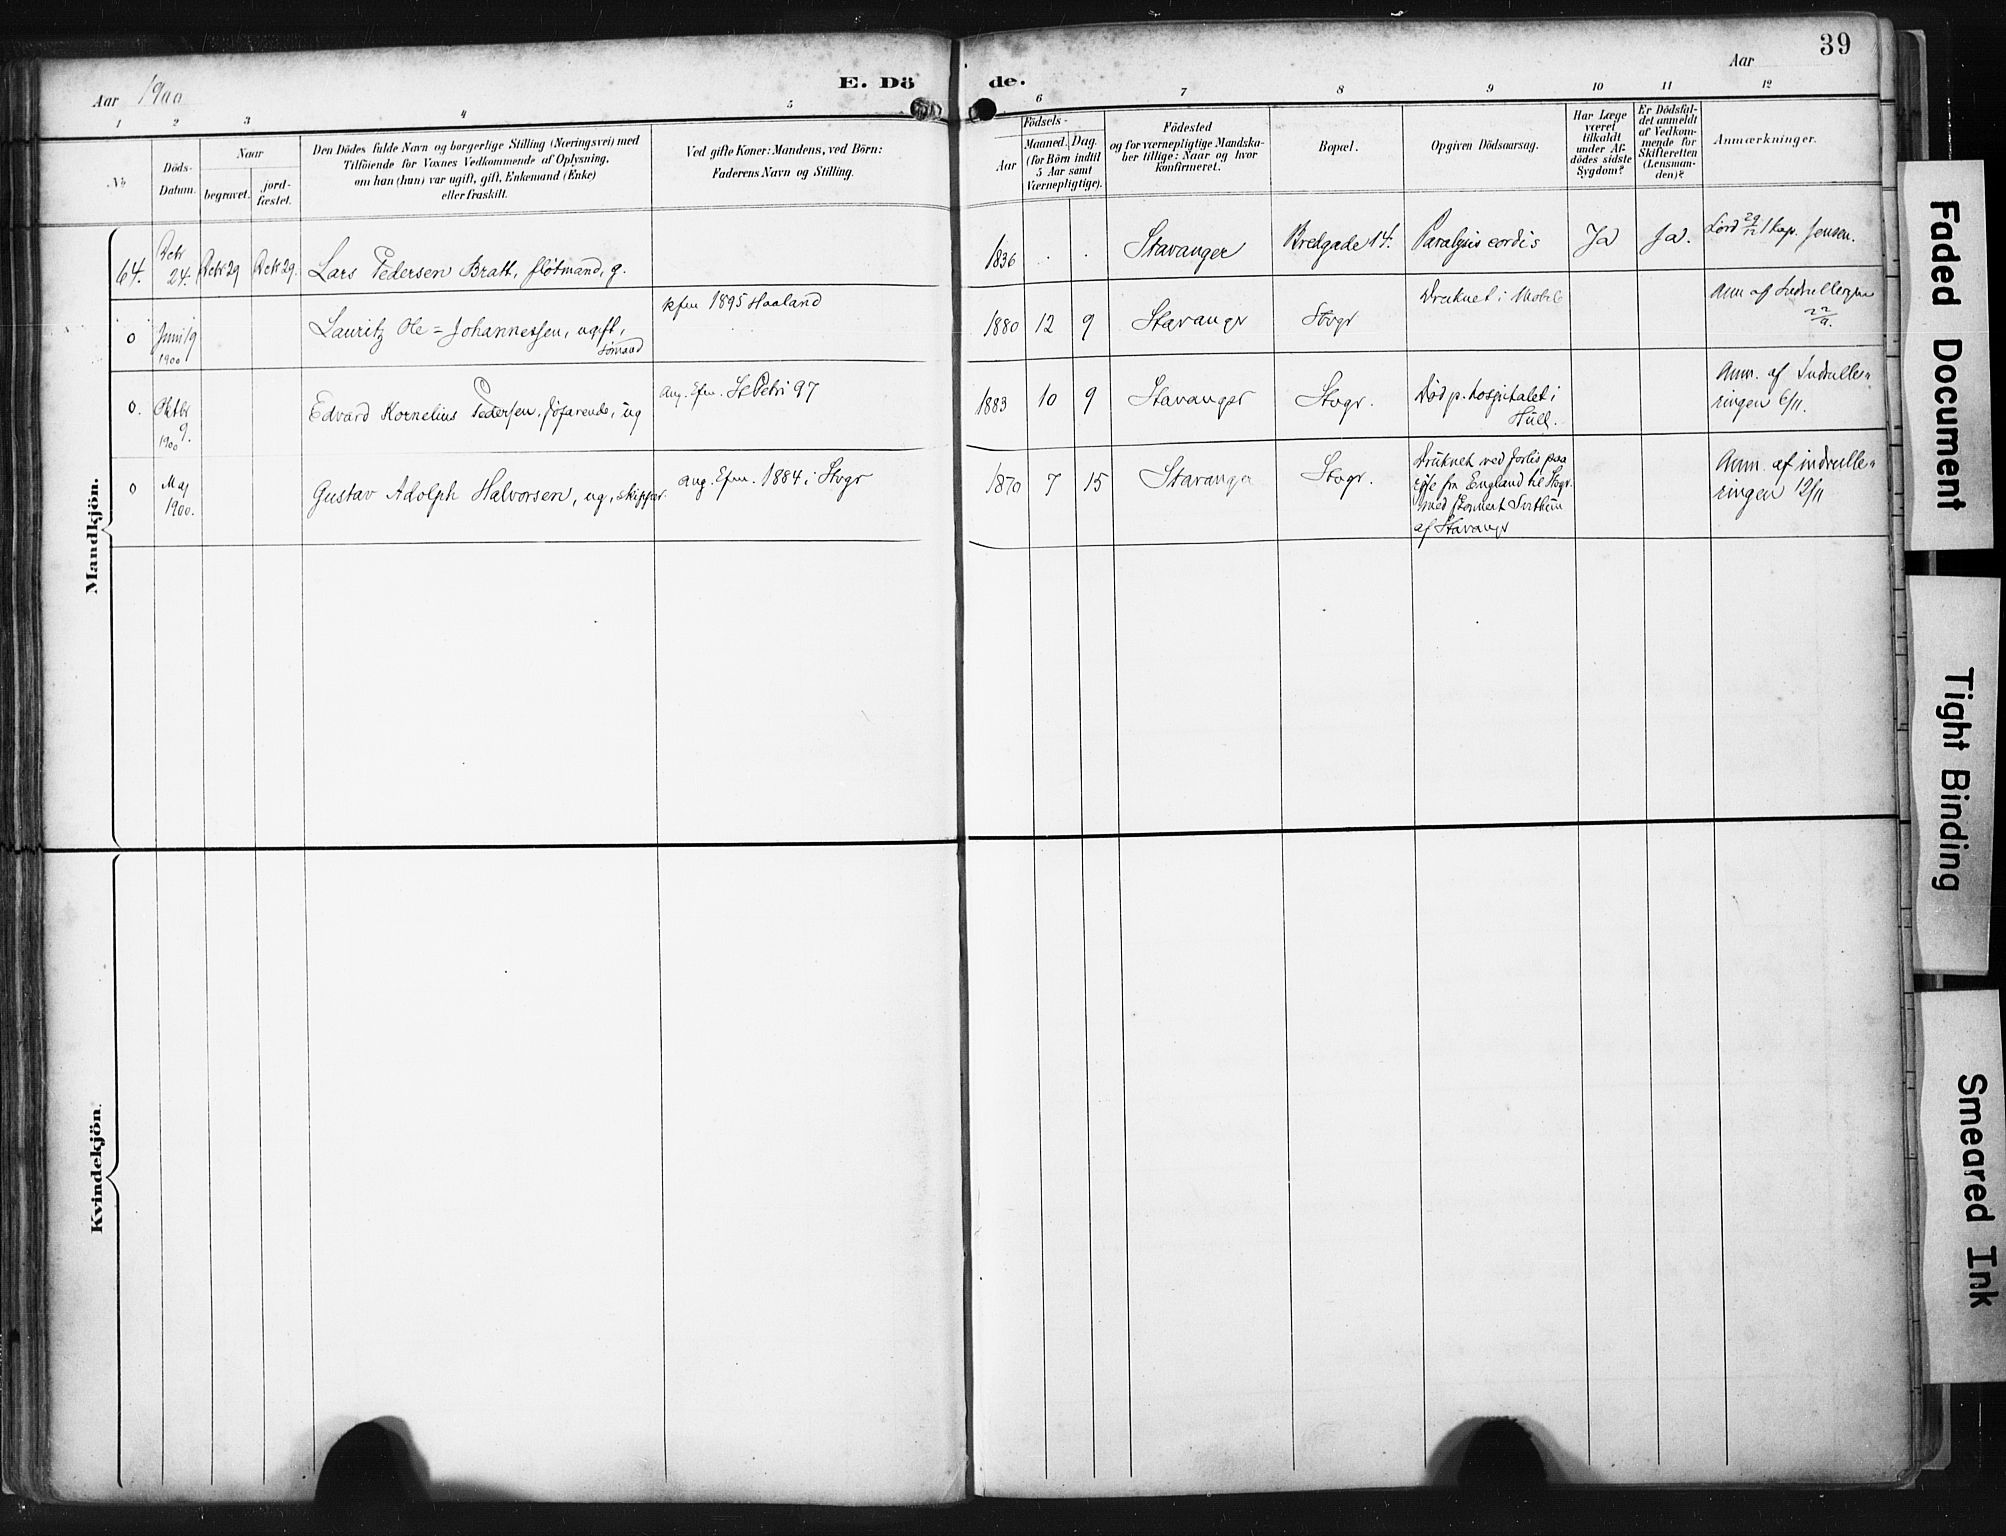 39
Aar 1900
E. Dö de.
Aar
1 2 3 4 5 6 7 8 9 10 11 12
No.
Döds-
Datum.
Naar
begravet.
jord-
fæstet.
Den Dödes fulde Navn og borgerlige Stilling (Næringsvei) med
Tilföiende for Voxnes Vedkommende af Oplysning,
om han (hun) var ugift, gift, Enkemand (Enke)
eller fraskilt.
Ved gifte Koner: Mandens, ved Börn:
Faderens Navn og Stilling.
Födsels-
Aar
Maaned.
Dag.
(for Börn indtil
5 Aar samt
Værnepligtige).
Födested
og for værnepligtige Mandska-
ber tillige: Naar og hvor
konfirmeret.
Bopæl.
Opgiven Dödsaarsag.
Har Læge
været
tilkaldt
under Af-
dödes sidste
Sygdom?
Er Dödsfal-
det anmeldt
af Vedkom-
mende for
Skifteretten
(Lensman-
den)?
Anmærkninger.
Mandkjön.
64.
Dcbr
24.
Dcbr 29
Dcbr 29.
Lars Pedersen Bratt, fløtmand, g.
1836
Stavanger
Bredgade 14.
Paralysis cordis
Ja
Ja.
Jord 29/12 Kap. Jensen.
0
Juni 19
1900
Lauritz Ole = Johannessen, ugift,
sømand
kfm 1895 Haaland
1880 12 9
Stavanger
Stvgr
Druknet i Mobile
Anm af Indrulleringen
22/9.
0.
Oktbr
9.
1900
Edvard Kornelius Pedersen, søfarende, ug
ang. kfm. St Petri 97
1883 10 9
Stavanger
Stvgr.
Död p. hospitalet i
Hull.
Anm. af Indrulle=
ringen 6/11.
0
Maj
1900.
Gustav Adolph Halvorsen, ug., skipper.
ang. kfm. 1884 i Stvgr
1870 7 15
Stavanger
Stvgr.
Druknet ved forlis paa
rejse fra England til Stvgr.
med skonnert
af Stavanger
Anm. af indrulle=
ringen 12/11
Kvindekjön.
Faded Document
Tight Binding
Smeared Ink